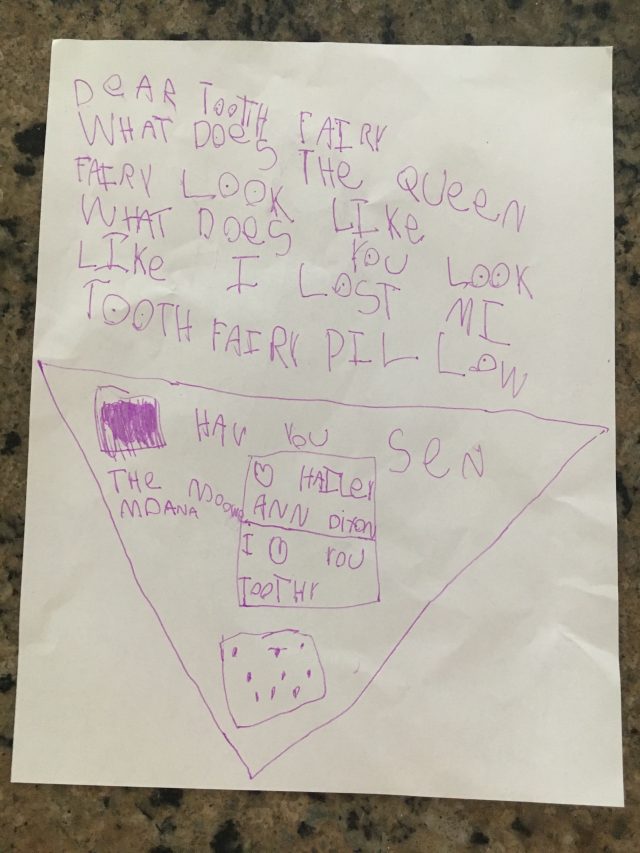 DeAR TOOTH FAIRY
WHAT DOeS THe QUeeN
FAIRY LOOK LIKe
WHAT DOeS YOU LOOK
LIKe I LOST MI
TOOTH FAIRY PIL LOW
HAV YOU SeN
THe MOANA MOOWe
HAILeY
ANN DIXON
I YOU
TOOTHY